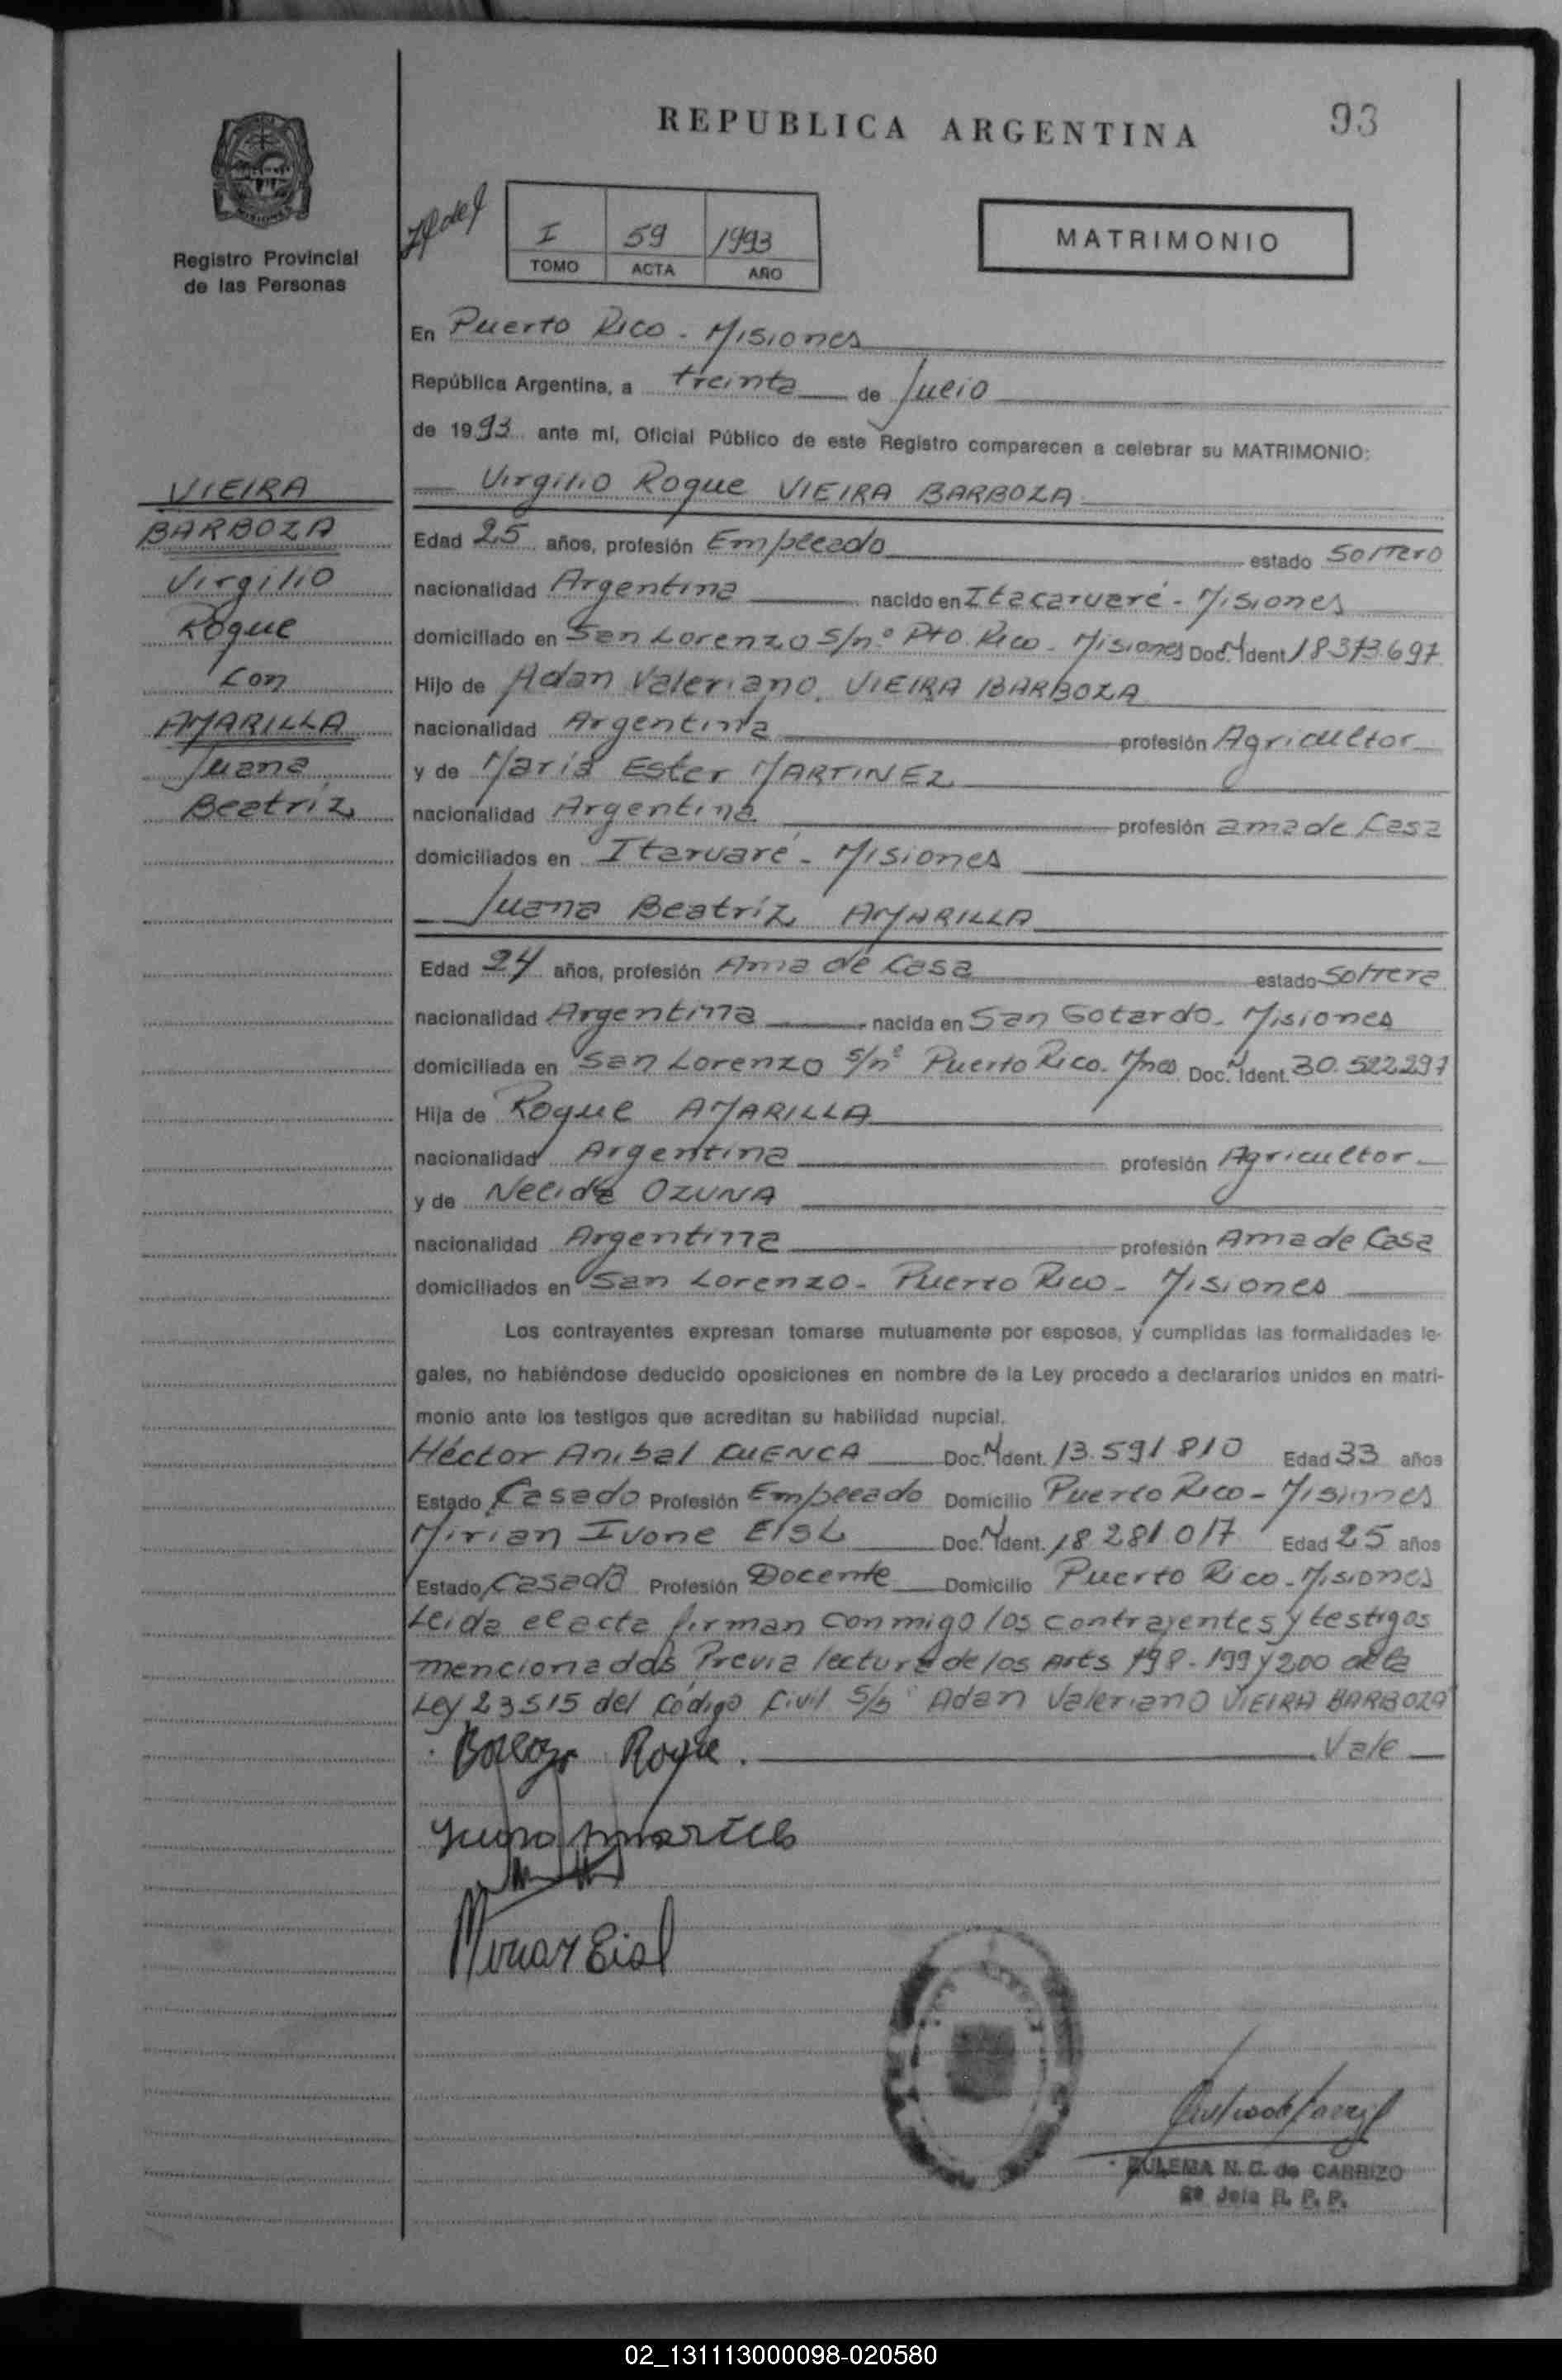 REPUBLICA ARGENTINA
93
Registro Provincial
de las Personas
I 59 1993
TOMO ACTA AÑO
MATRIMONIO
En Puerto Rico - Misiones
República Argentina, a treinta de Julio
de 1993 ante mí, Oficial Público de este Registro comparecen a celebrar su MATRIMONIO:
VIEIRA
BARBOZA
Virgilio
Roque
Con
AMARILLA
Juana
Beatríz
Virgilio Roque VIEIRA BARBOZA
Edad 25 años, profesión Empleado estado Soltero
nacionalidad Argentina nacido en Itacaruaré - Misiones
domiciliado en San Lorenzo S/nº Pto Rico - Misiones Doc. N Ident 18373.697
Hijo de Adan Valeriano VIEIRA BARBOZA
nacionalidad Argentina profesión Agricultor
y de María Ester MARTINEZ
nacionalidad Argentina profesión ama de Casa
domiciliados en Itaruaré - Misiones
Juana Beatríz AMARILLA
Edad 24 años, profesión Ama de Casa estado Soltera
nacionalidad Argentina nacida en San Gotardo - Misiones
domiciliada en San Lorenzo s/nº Puerto Rico. Mnes Doc. N Ident. 30.522.297
Hija de Roque AMARILLA
nacionalidad Argentina profesión Agricultor
y de Nelida OZUNA
nacionalidad Argentina profesión Ama de Casa
domiciliados en San Lorenzo - Puerto Rico - Misiones
Los contrayentes expresan tomarse mutuamente por esposos, y cumplidas las formalidades le-
gales, no habiéndose deducido oposiciones en nombre de la Ley procedo a declararlos unidos en matri-
monio ante los testigos que acreditan su habilidad nupcial.
Héctor Anibal CUENCA Doc. N Ident. 13.591.810 Edad 33 años
Estado Casado Profesión Empleado Domicilio Puerto Rico - Misiones
Mirian Ivone EISL Doc. N Ident. 18.281.017 Edad 25 años
Estado Casada Profesión Docente Domicilio Puerto Rico - Misiones
Leida el acta firman conmigo los contrayentes y testigos
mencionados Previa lectura de los Arts 198 - 199 y 200 de la
Ley 23515 del Código Civil S/b Adan Valeriano VIEIRA BARBOZA
Vale
Barboza Roque.
Juana Amarilla
Mirian Eisl
ZULEMA N. C. de CARRIZO
R. P. P.
02_131113000098-020580